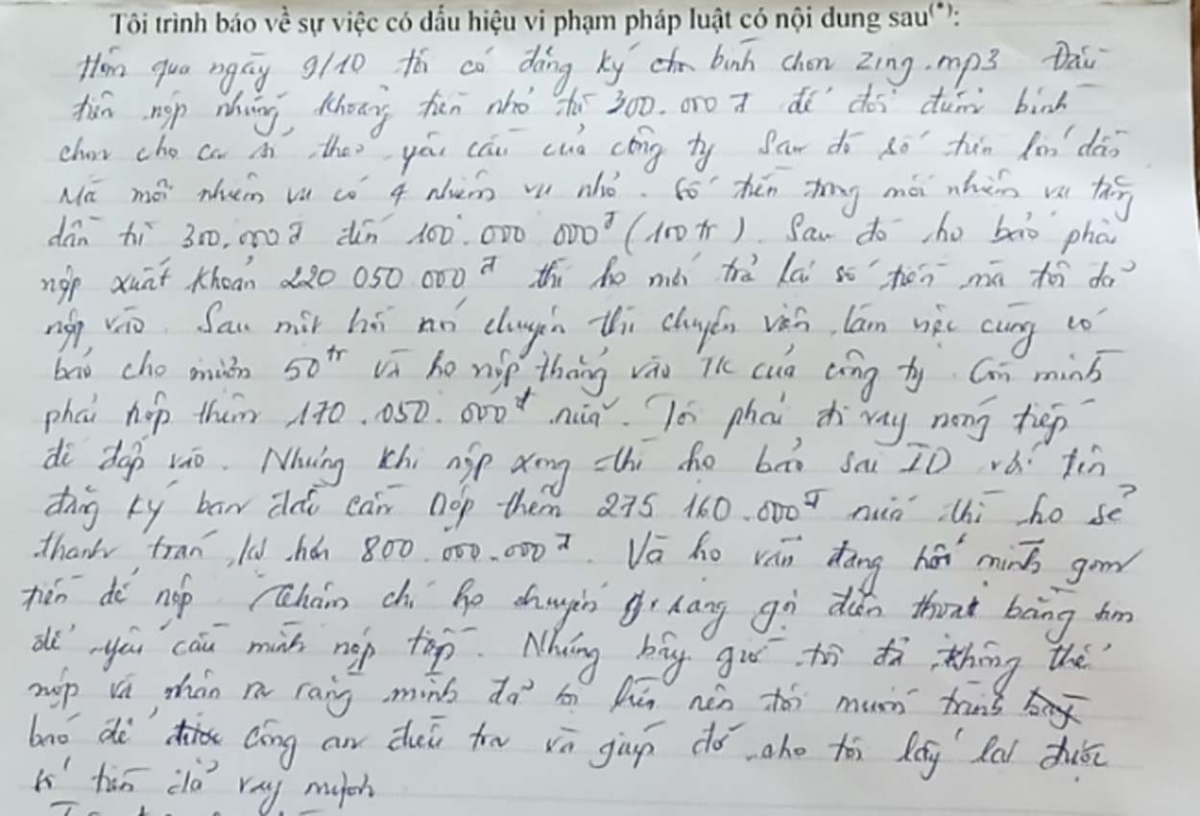 Tôi trình báo về sự việc có dấu hiệu vi phạm pháp luật có nội dung sau(*):
Hôm qua ngày 9/10 tôi có đăng ký bình chọn Zing.mp3 Đầu
tiên nộp những khoảng tiền nhỏ từ 300.000đ để đổi điểm bình
chọn cho ca sĩ theo yêu cầu của công ty Sau đó số tiền lớn dần
Mà mỗi nhiệm vụ có 4 nhiệm vụ nhỏ. Số tiền trong mỗi nhiệm vụ tăng
dần từ 300.000đ đến 100.000 000đ (100tr). Sau đó họ bảo phải
nộp xuất khoản 220 050 000đ thì họ mới trả lại số tiền mà tôi đã
nộp vào. Sau một hồi nói chuyện thì chuyên viên làm việc cùng có
báo cho mượn 50tr và họ nộp thẳng vào TK của công ty. Còn mình
phải nộp thêm 170.050.000đ nữa. Tôi phải đi vay nóng tiếp
để đắp vào. Nhưng khi nộp xong thì họ báo sai ID với tên
đăng ký ban đầu cần nộp thêm 275 160.000đ nữa thì họ sẽ
thanh toán lại hơn 800.000.000đ. Và họ vẫn đang hối mình gom
tiền để nộp. Thậm chí họ chuyển sang gọi điện thoại bằng sim
để yêu cầu mình nộp tiếp. Nhưng bây giờ tôi đã không thể
nộp và nhận ra rằng mình đã bị lừa nên tôi muốn trình
báo để được công an điều tra và giúp đỡ cho tôi lấy lại được
số tiền đã vay mượn